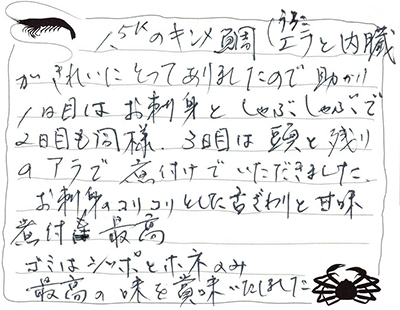 1.5Kのキンメ鯛(うろこエラと内臓
がきれいにとってありましたので助かり
1日目はお刺身としゃぶしゃぶで
2日目も同様、3日目は頭と残り
のアラで煮付けでいただきました、
お刺身のコリコリとした舌ざわりと甘味
煮付け最高
ゴミはシッポとホネのみ
最高の味を賞味いたしました